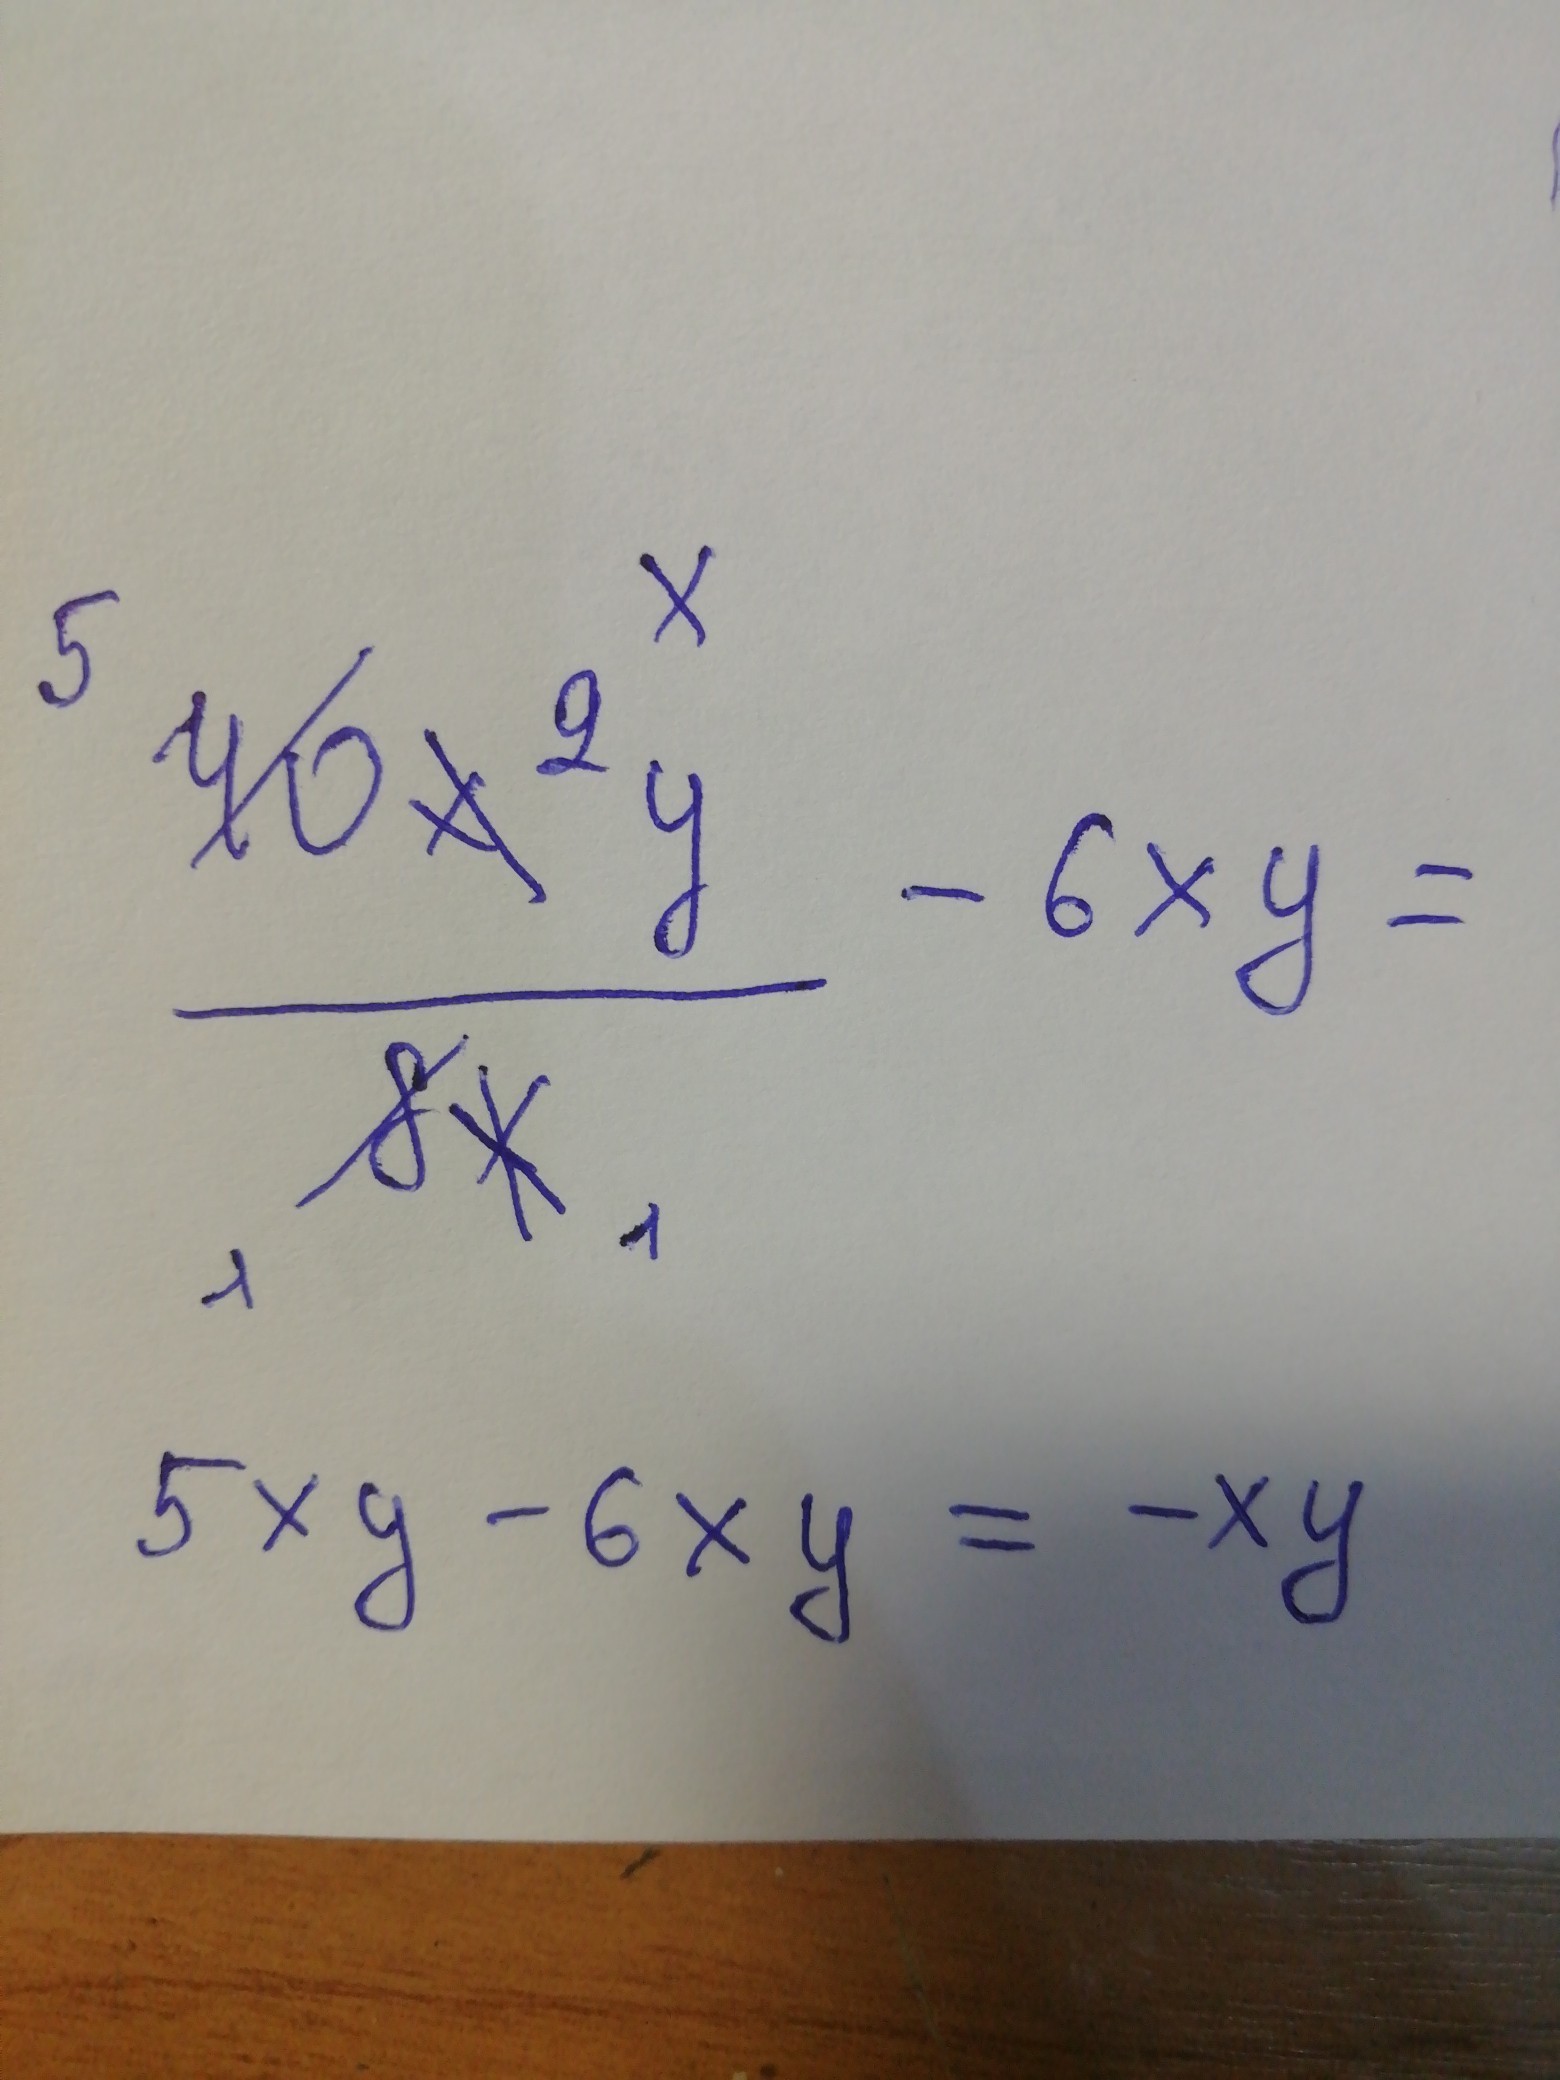 x
5
40x²y - 6xy =
8x
1 1
5xy - 6xy = -xy